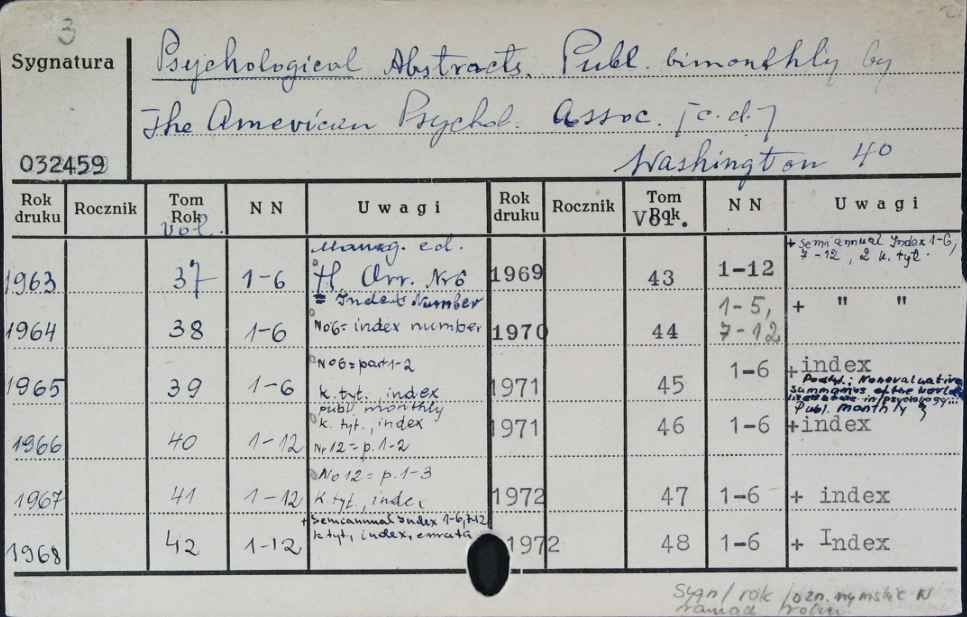 3
Sygnatura
Psychological Abstracts. Publ. bimonthly by
The American Psychol. Assoc. [c.d.]
032459
Washington 40
Rok druku Rocznik Tom Rok Vol. N N Uwagi Rok druku Rocznik Tom Rok Vol. N N Uwagi
1963 37 1-6 Manag. ed.
H. Orr. Nr6
= Index Number
1969 43 1-12 + semiannual Index 1-6,
7-12, 2 k. tyt.
1964 38 1-6 No6= index number
1970 44 1-5,
7-12 + " "
1965 39 1-6 No6=part 1-2
k. tyt., index
1971 45 1-6 +index
Podtyt.: Nonevaluative
summaries of the world
literature in psychology...
Publ. monthly
1966 40 1-12 publ. monthly
k. tyt., index
Nr 12=p.1-2
1971 46 1-6 +index
1967 41 1-12 No 12= p.1-3
k tyt., index
1972 47 1-6 + index
1968 42 1-12 + semiannual Index 1-6, 7-12
k tyt., index, errata
1972 48 1-6 + Index
Sygn/ rok